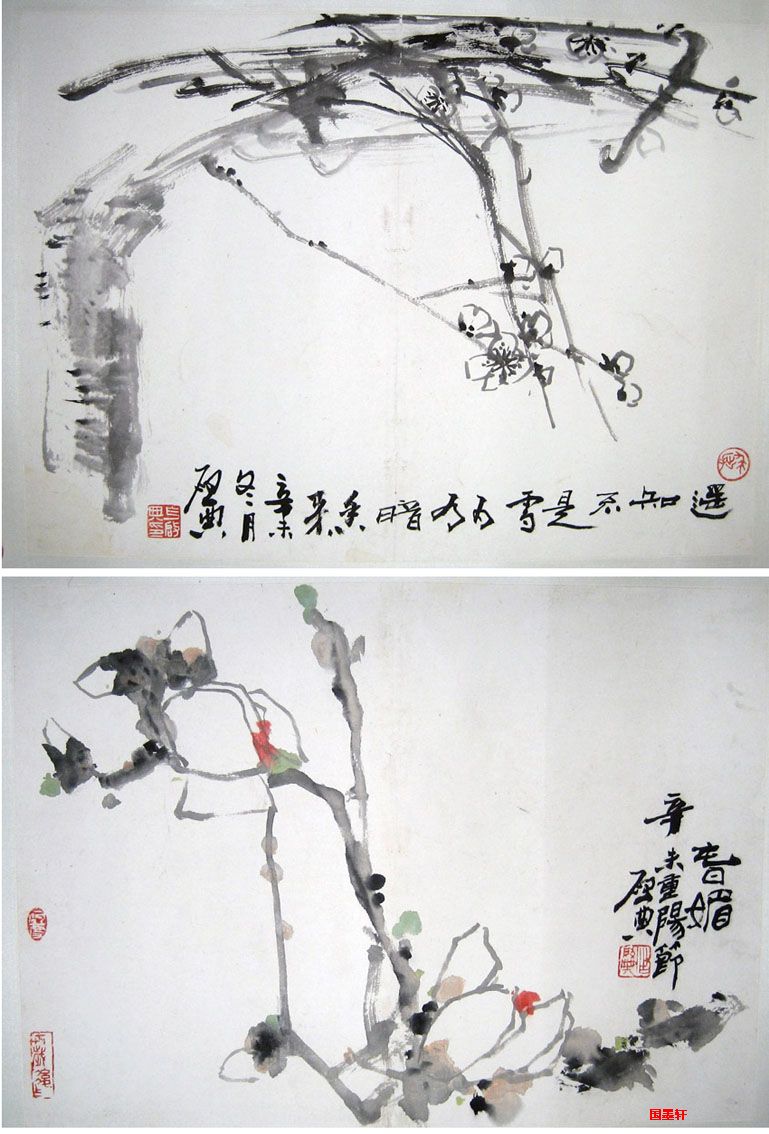 遥知不是雪为有暗香来
辛未
冬月
启典
春媚
辛未重陽節
启典
国墨轩